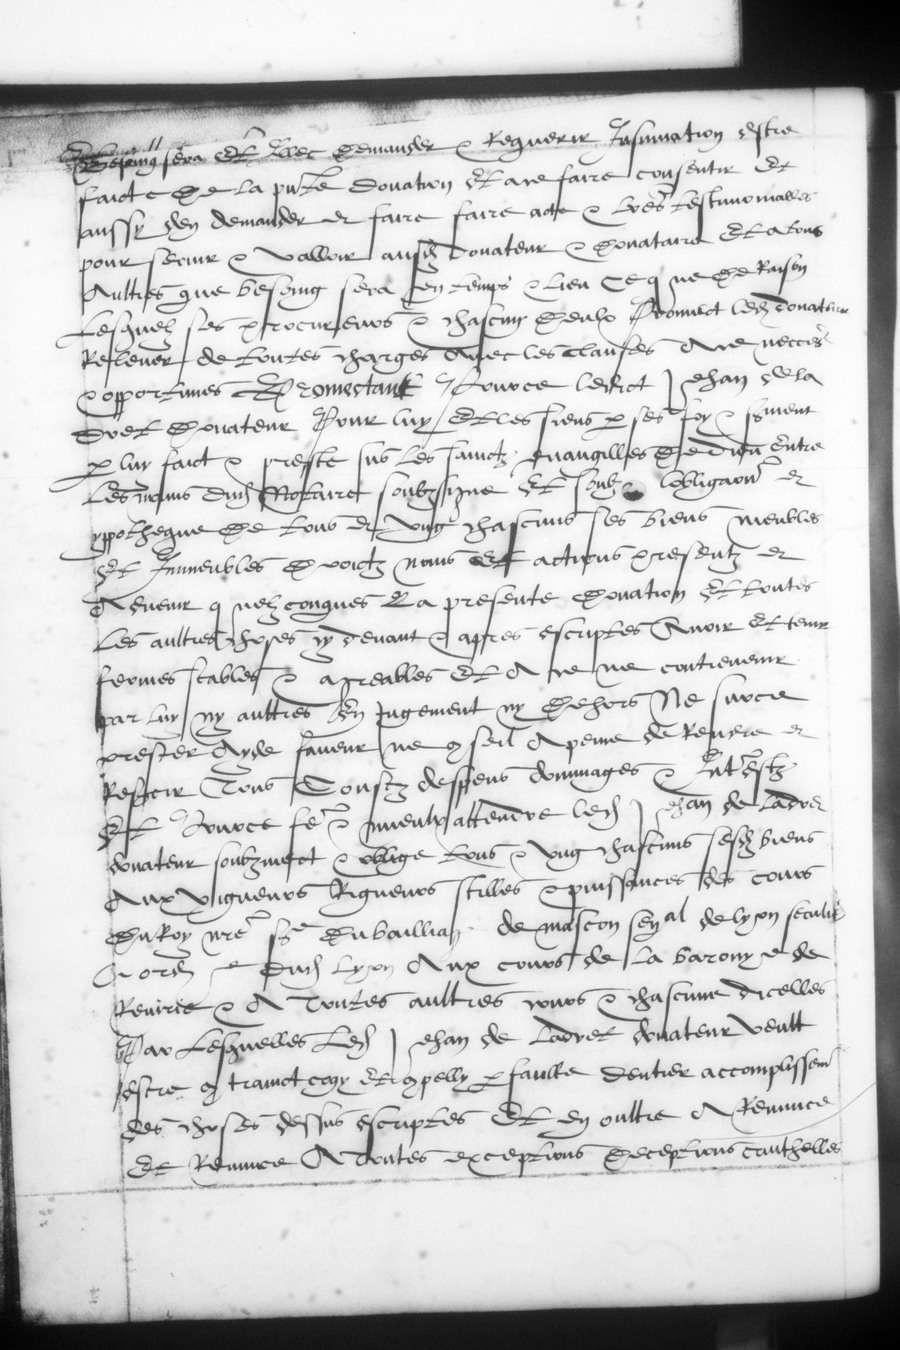 Besoing sera Et Illec demander & Requerir Insinuation estre
faicte De la pnte donation Et a ce faire consentir Et
aussy den demander et faire faire acte & lres testimonialles
pour servir & valloir ausd donateur & donataire Et a tous
Aultres que besoing sera en temps & lieu Ce que De Raison
Lesquelz ses procureurs & chascun deulx Promect led donateur
Relever de toutes charges Avec les clauses A ce neccres
& opportunes Promectant Jehan de la
donateur Pour luy Et les siens p ses foy & sment
p luy faict & preste sus les sainctz evangilles De Dieu Entre
Les mains dud Notaire soubzsigne Et soubz lobligaon et
yppotheque De tous et ung chascuns ses biens meubles
Et Immeubles droictz noms Et actions presentz et
Advenir quelzconques La presente donation Et toutes
Les aultres choses cy devant & apres escriptes Avoir Et tenir
fermes stables & agreables Et A ce ne contrevenir
par luy ny aultres En Jugement ny Dehors Ne
prester Ayde faveur ne conseil A peine de Rendre et
Tous Coustz despens dommages & Intrestz
Et & mieulx attendre led Jehan de Ladvet
donateur soubzmect & oblige tous & ung chascuns sesd biens
Aux vigueurs Rigueurs stilles & puissances des cours
Du Roy nre sre Du bailliage de mascon senal de lyon seculie
& ord dud lyon Aux cours de La baronye de
& A Toutes aultres cours & chascune dicelles
Par Lesquelles Led Jehan de Ladvet donateur veult
estre contrainct et conpelly p faulte dentier accomplissemt
des choses dessus escriptes Et en oultre A Renunce
Et Renunce A Toutes exceptions deceptions cauthelles